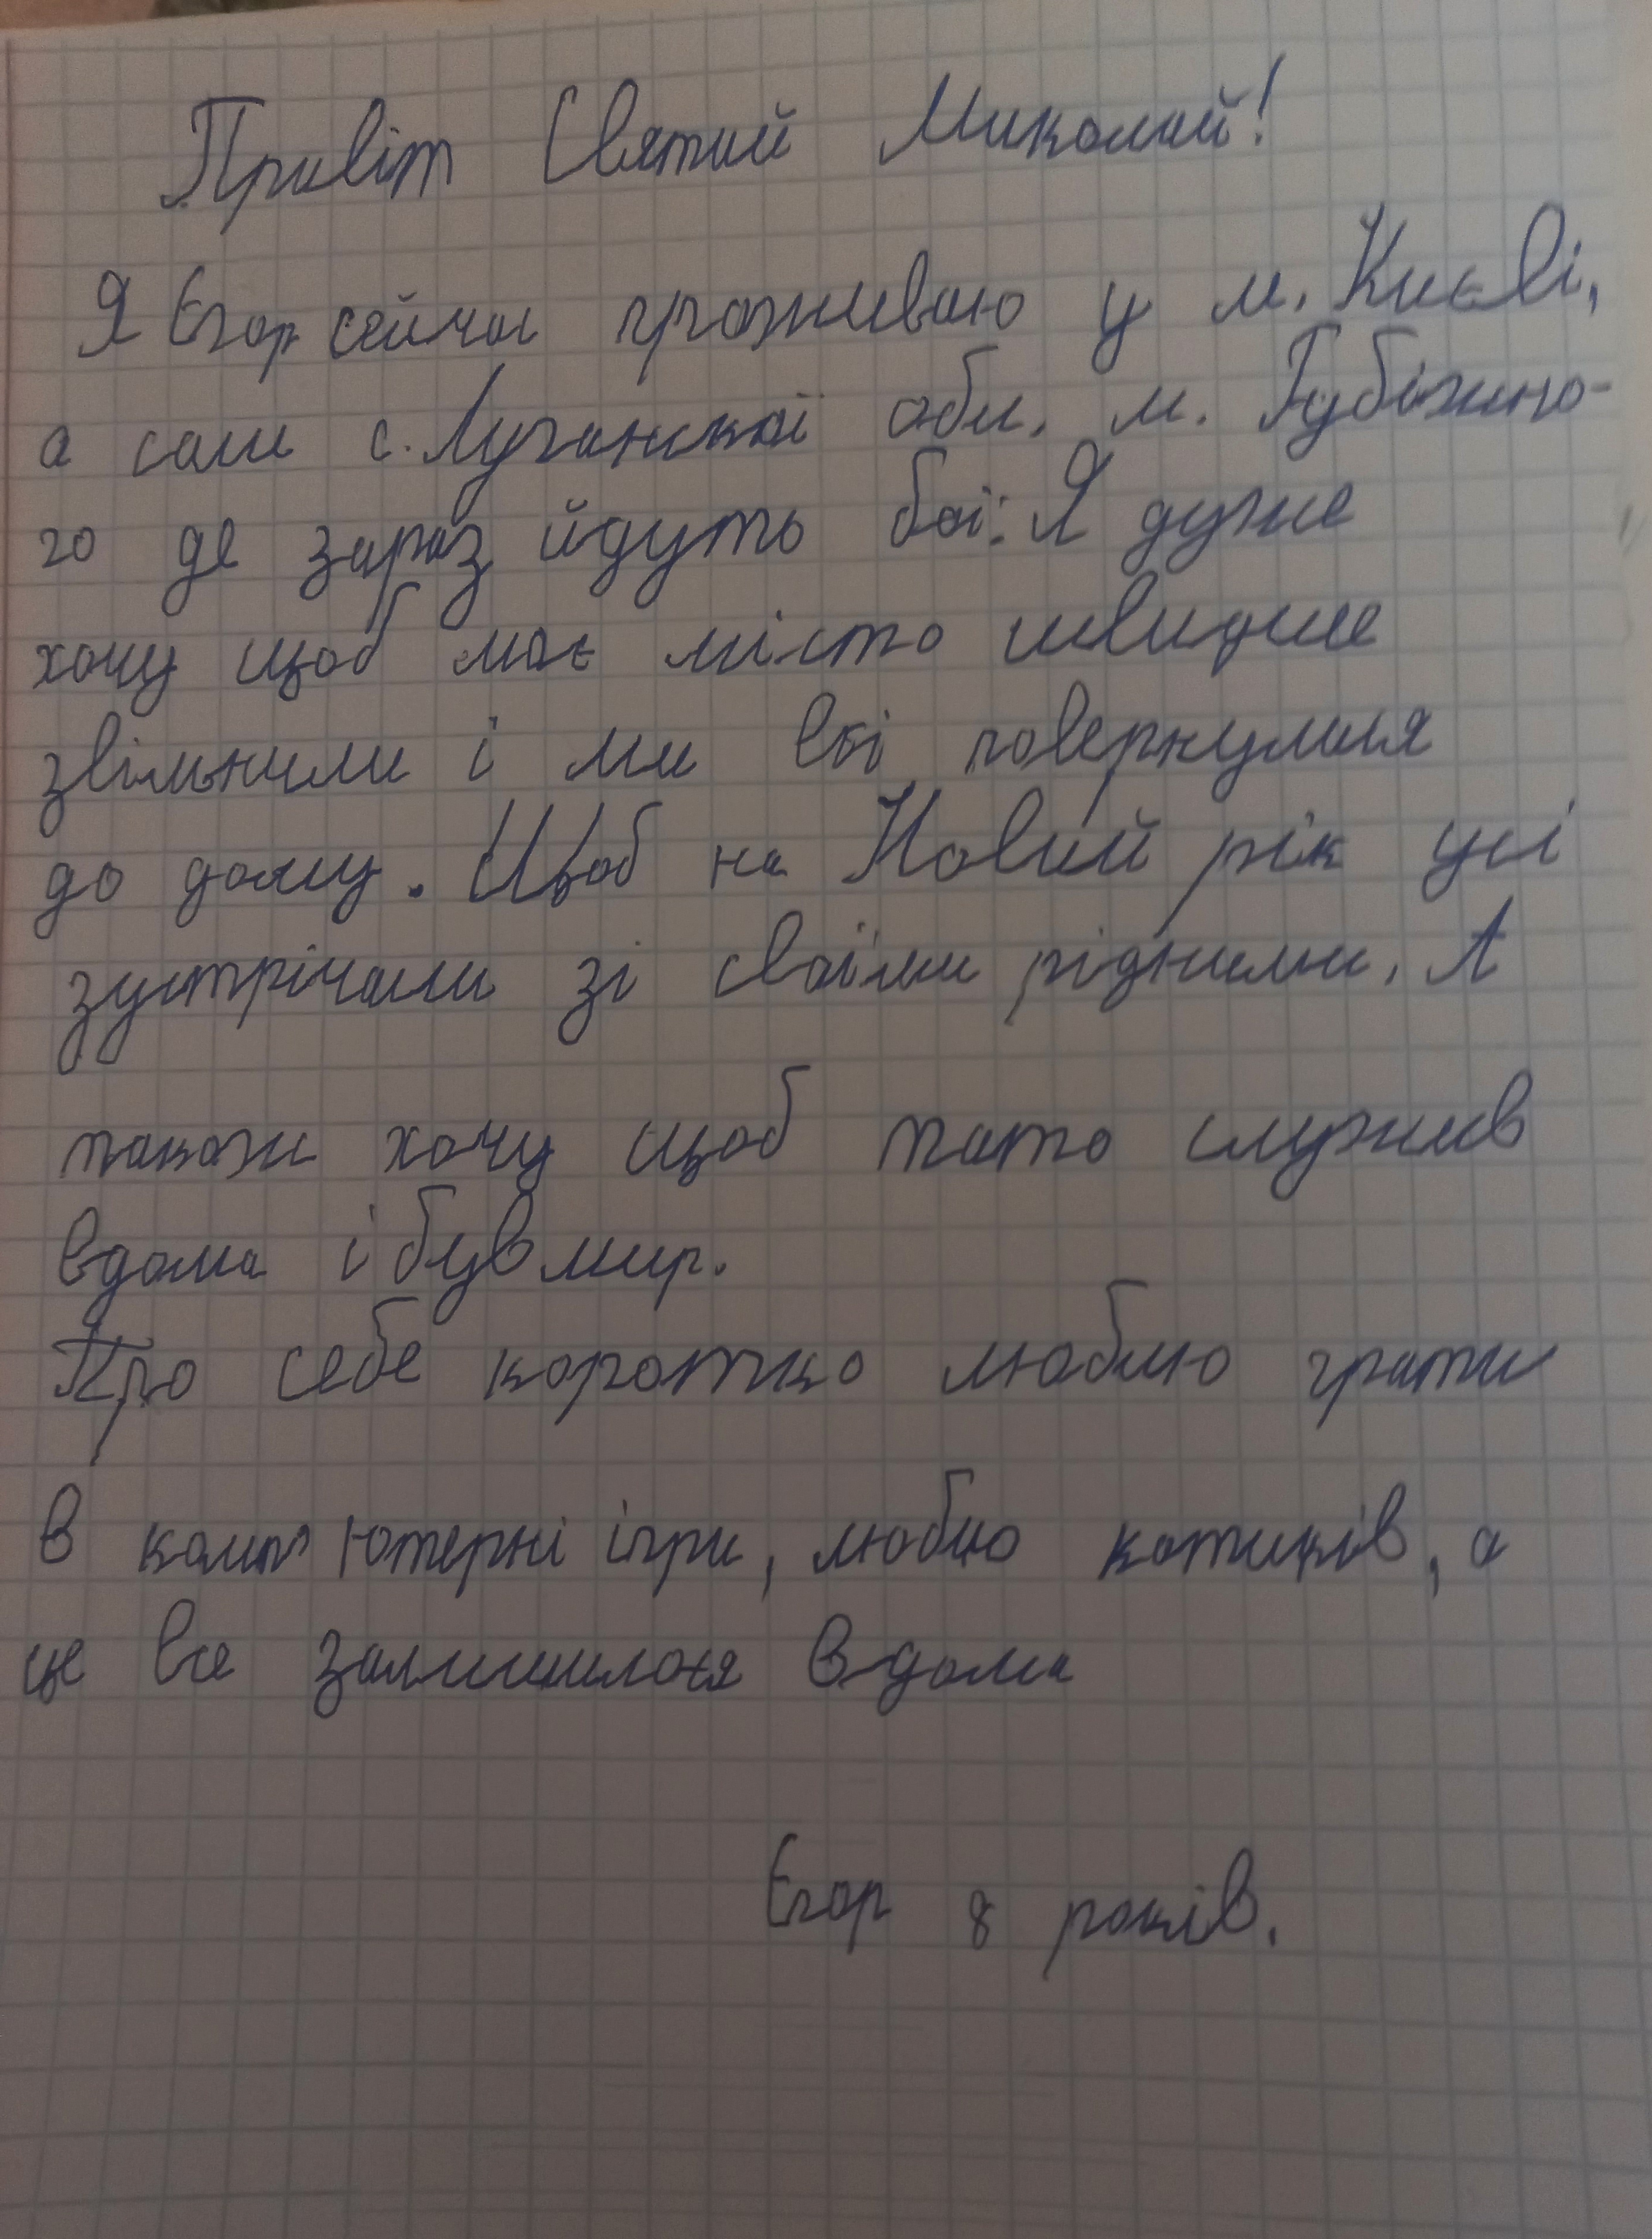 Привіт Святий Миколай!
Я Єгор сейчас проживаю у м. Києві,
а сам с. Луганскої обл. м. Губіжно-
го де зараз йдуть бої. Я дуже
хочу щоб моє місто швидше
звільнили і ми всі повернулися
до дому. Щоб на Новий рік усі
зустрічали зі своїми рідними. А
також хочу щоб тато служив
вдома і був мир.
Про себе коротко люблю грати
в комп'ютерні ігри, люблю котиків, а
це все залишилося вдома
Єгор 8 років.